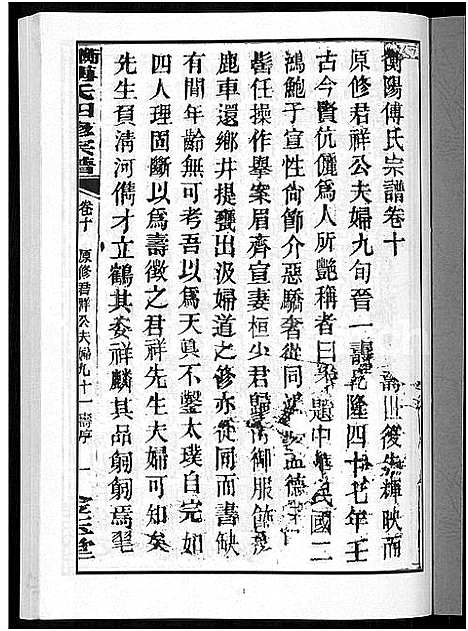 衡陽傅氏宗譜卷十
原修君祥公夫婦九旬晉一壽乾隆四十七年壬
古今賢伉儷為人所艷稱者曰梁題中華民國二
鴻鮑子宣性尚節介惡驕奢從同孟德
髻任操作舉案眉齊宣妻桓少君歸御服飾
鹿車還鄉井提甕出汲婦道之修亦從同而書缺
有間年齡無可考吾以為天眞不鑿太璞自完如
四人理固斷以為壽徵之君祥先生夫婦可知矣
先生負清河儁才立鶴其姿祥麟其品翩翩焉毣
後先輝映而
衡傅氏四修宗譜
卷十
原修君祥公夫婦九十一壽序
一